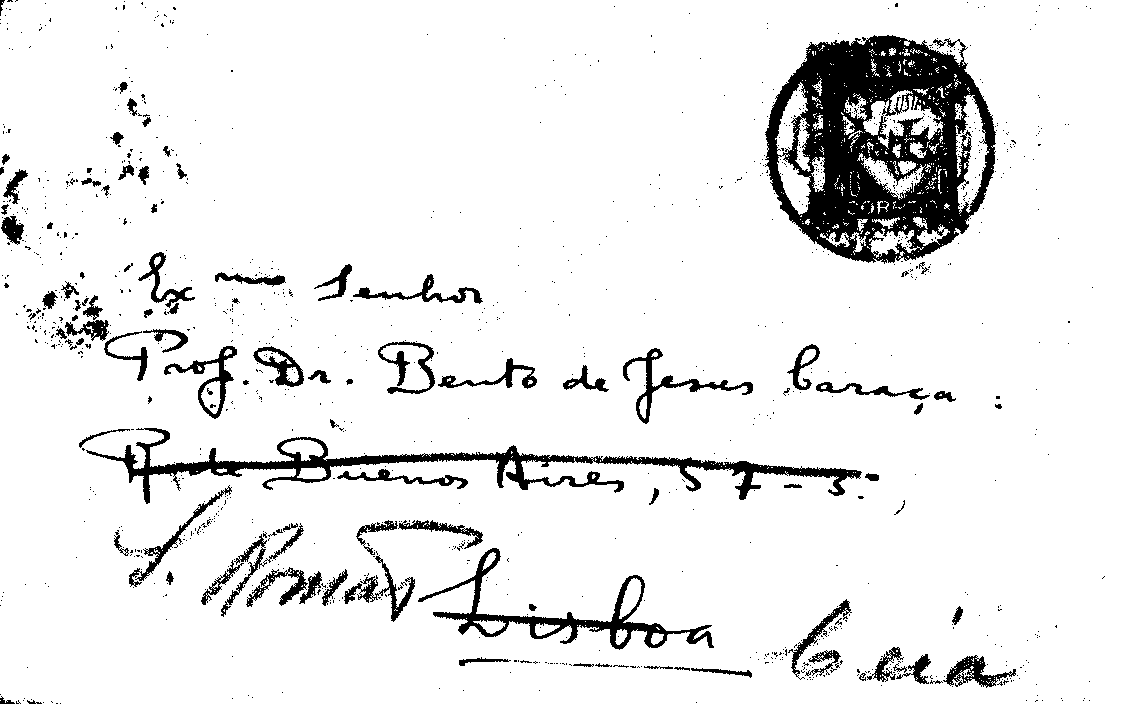 LUSIA
CORREIO
Exmo Senhor
Prof. Dr. Bento de Jesus Caraça
R. de Buenos Aires, 57-3º
S. Romão Lisboa Ceia